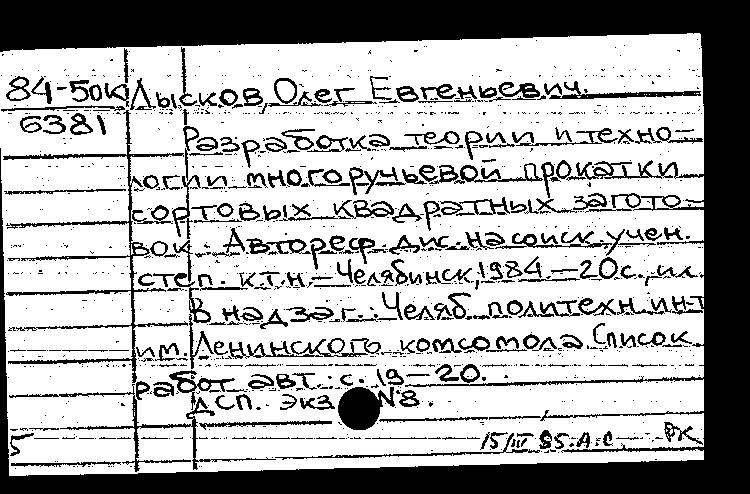 84-50к Лысков, Олег Евгеньевич.
6381
Разработка теории и техно-
логии многоручьевой прокатки
сортовых квадратных загото-
вок. Автореф. дис. на соиск. учен.
степ. к.т.н. – Челябинск, 1984. – 20 с., ил.
В надзаг.: Челяб. политехн. ин-т
им. Ленинского комсомола. Список
работ авт.: с. 19–20.
ДСП. Экз. №8.
5 15/IV 85. А.С. РК